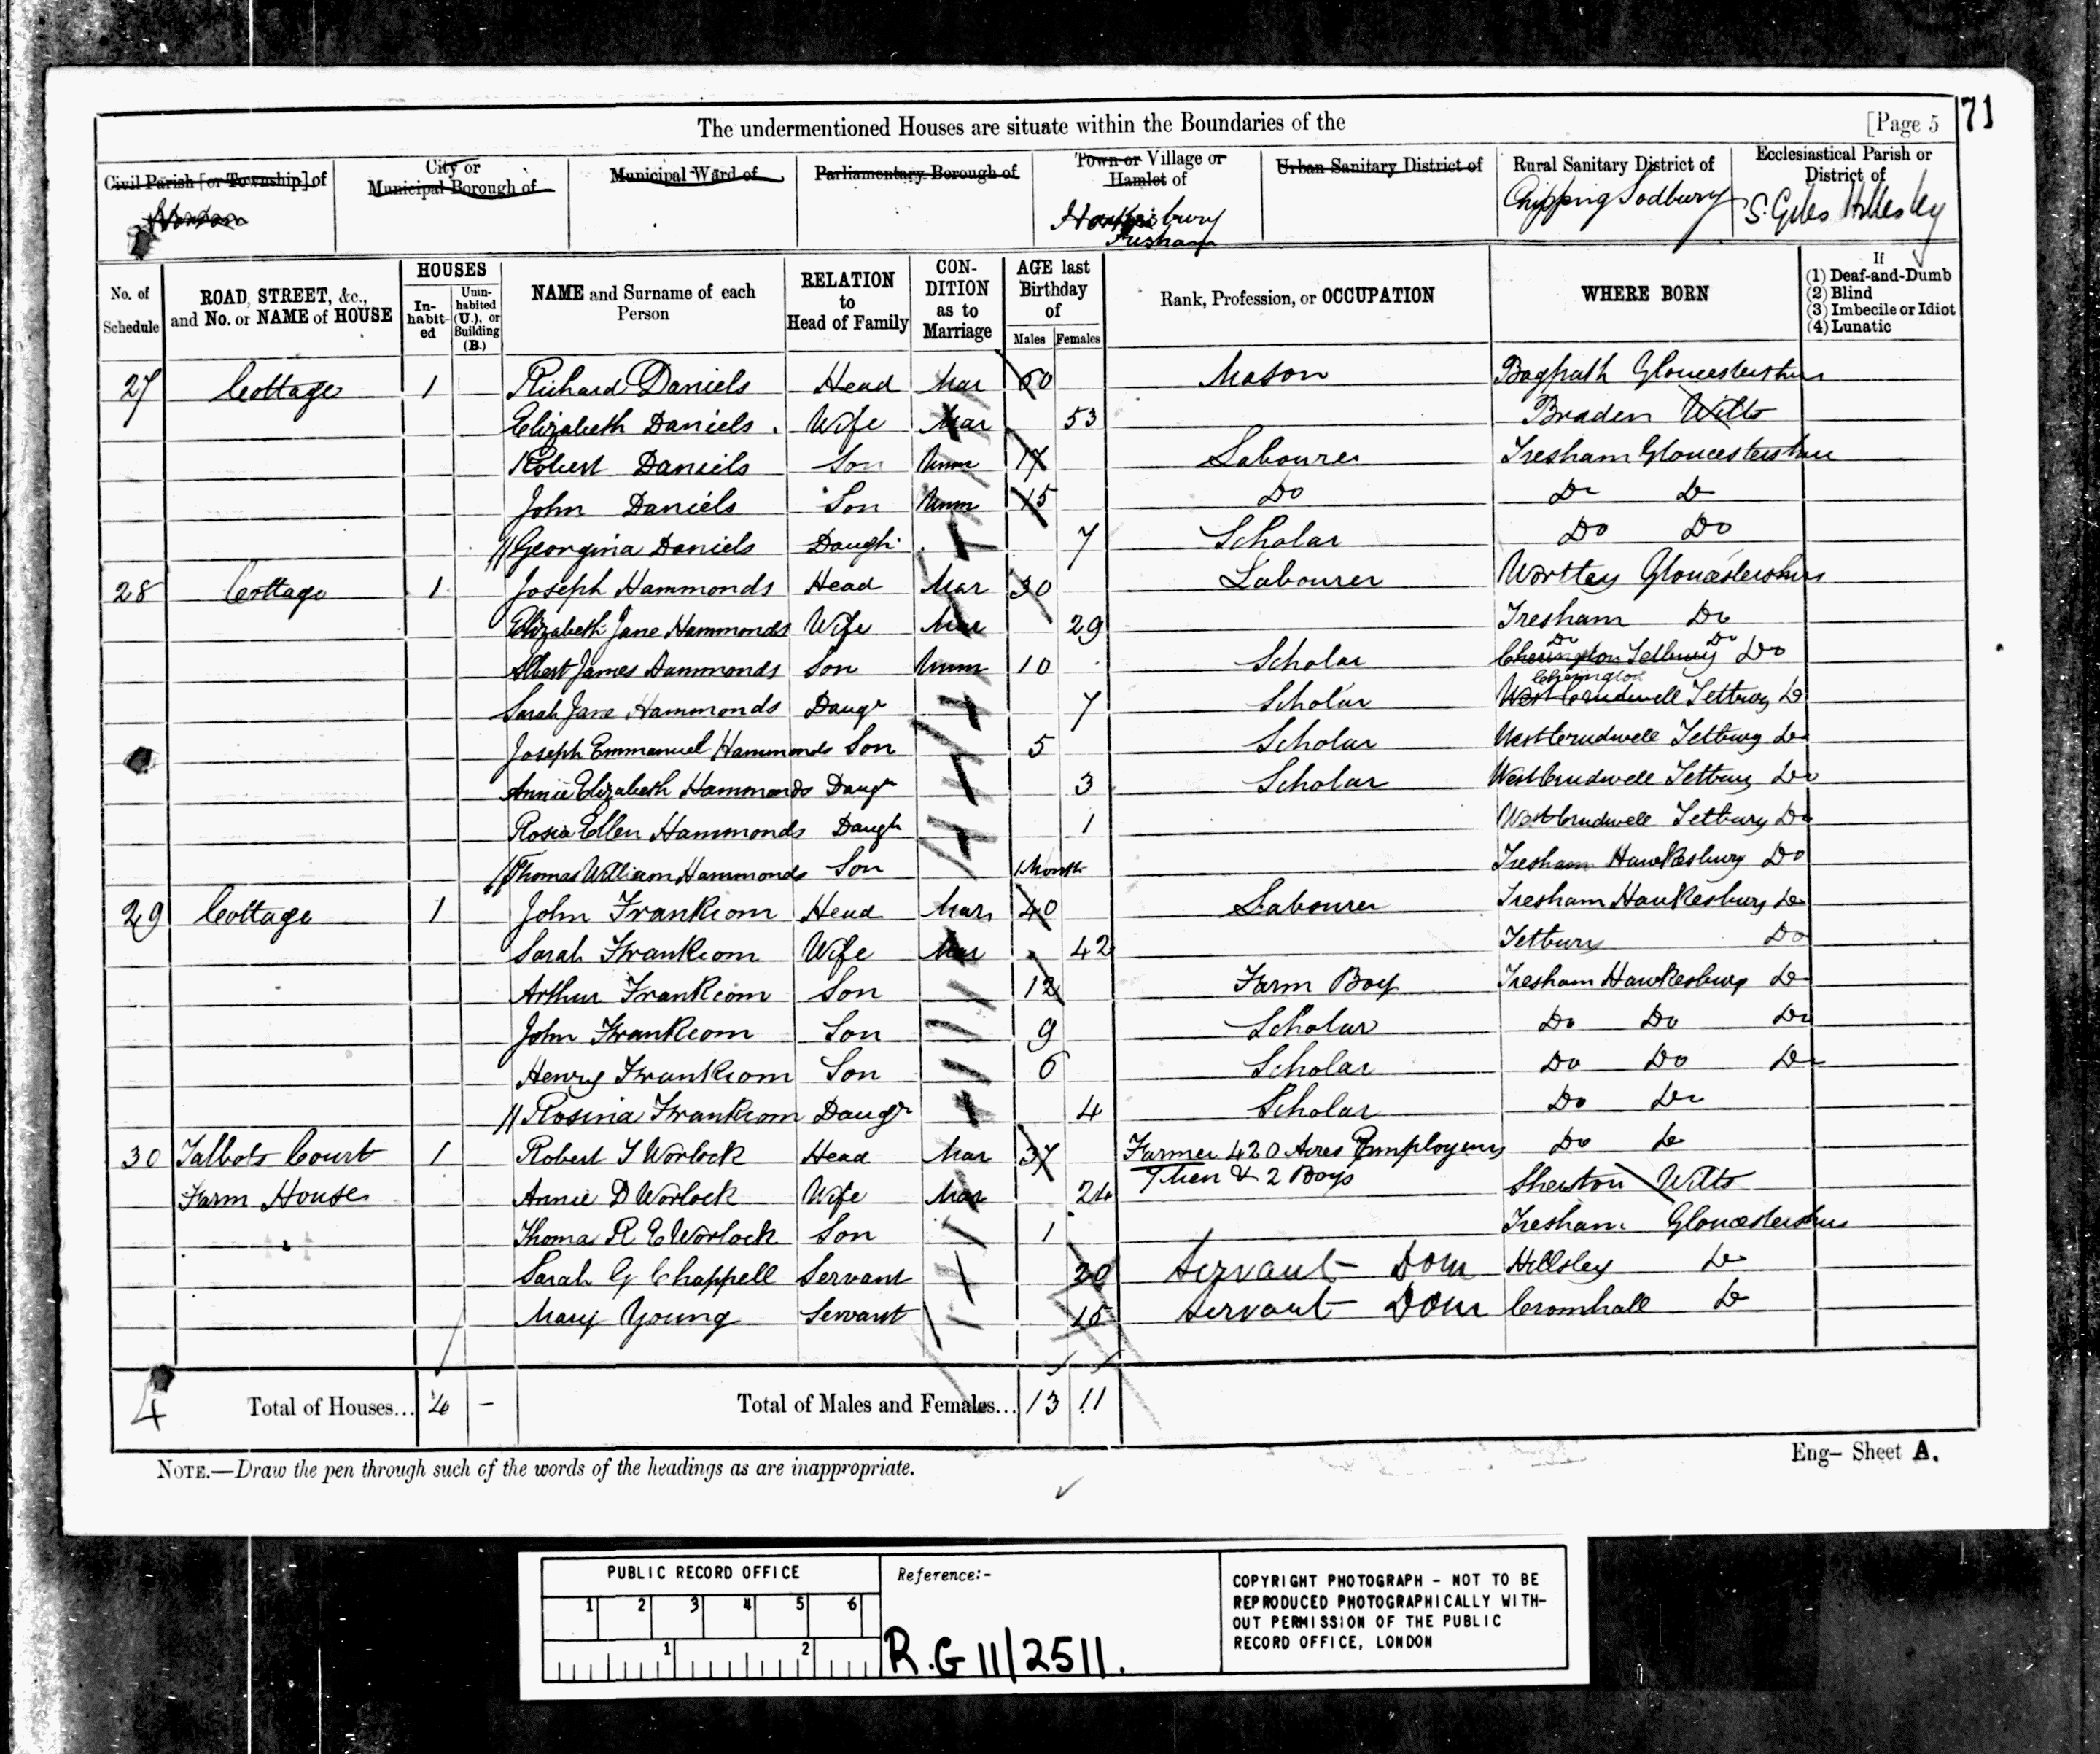 The undermentioned Houses are situate within the Boundaries of the [Page 5 71
Civil Parish [or Township] of City or Municipal Borough of Municipal Ward of Parliamentary Borough of Town or Village or Hamlet of Urban Sanitary District of Rural Sanitary District of Ecclesiastical Parish or District of
Horton Hawkesbury Tresham Chipping Sodbury S. Giles Hillesley
No. of Schedule ROAD, STREET, &c., and No. or NAME of HOUSE HOUSES In-habit-ed Unin-habited (U.), or Building (B.) NAME and Surname of each Person RELATION to Head of Family CON-DITION as to Marriage AGE last Birthday of Males Females Rank, Profession, or OCCUPATION WHERE BORN If (1) Deaf-and-Dumb (2) Blind (3) Imbecile or Idiot (4) Lunatic
27 Cottage 1 Richard Daniels Head Mar 60 Mason Bagpath Gloucestershire
Elizabeth Daniels . Wife Mar 53 Braden Wilts
Robert Daniels Son Unm 17 Labourer Tresham Gloucestershire
John Daniels Son Unm 15 Do Do Do
Georgina Daniels Daugh 7 Scholar Do Do
28 Cottage 1 Joseph Hammonds Head Mar 30 Labourer Wortley Gloucestershire
Elizabeth Jane Hammonds Wife Mar 29 Tresham Do
Albert James Hammonds Son Unm 10 Scholar Do Do Cherington Tetbury Do
Sarah Jane Hammonds Daugr 7 Scholar Cherington West Crudwell Tetbury Do
Joseph Emmanuel Hammonds Son 5 Scholar West Crudwell Tetbury Do
Annie Elizabeth Hammonds Daugr 3 Scholar West Crudwell Tetbury Do
Rosia Ellen Hammonds Daugh 1 West Crudwell Tetbury Do
Thomas William Hammonds Son 1 Month Tresham Hawkesbury Do
29 Cottage 1 John Frankcom Head Mar 40 Labourer Tresham Hawkesbury Do
Sarah Frankcom Wife Mar 42 Tetbury Do
Arthur Frankcom Son 12 Farm Boy Tresham Hawkesbury Do
John Frankcom Son 9 Scholar Do Do Do
Henry Frankcom Son 6 Scholar Do Do Do
Rosina Frankcom Daugr 4 Scholar Do Do
30 Talbots Court 1 Robert T Worlock Head Mar 37 Farmer 420 Acres Employeing Do Do
Farm House Annie D Worlock Wife Mar 24 7 Men & 2 Boys Sherston Wilts
Thomas R E Worlock Son 1 Tresham Gloucestershire
Sarah G Chappell Servant 20 Servant Dom Hillsley Do
Mary Young Servant 15 Servant Dom Cromhall Do
4 Total of Houses... 4 – Total of Males and Females... 13 11
NOTE.—Draw the pen through such of the words of the headings as are inappropriate.
Eng– Sheet A.
PUBLIC RECORD OFFICE
1 2 3 4 5 6
1 2
Reference:-
R.G 11/2511.
COPYRIGHT PHOTOGRAPH - NOT TO BE
REPRODUCED PHOTOGRAPHICALLY WITH-
OUT PERMISSION OF THE PUBLIC
RECORD OFFICE, LONDON